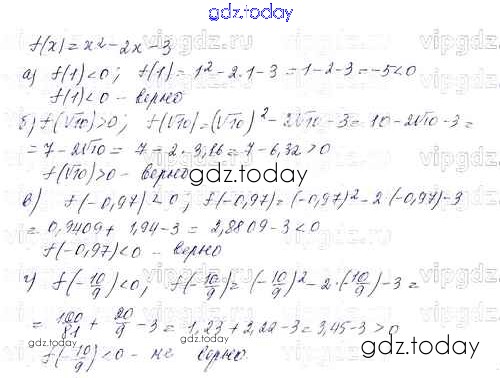 gdz.today
f(x) = x² - 2x - 3
а) f(1) < 0; f(1) = 1² - 2·1 - 3 = 1 - 2 - 3 = -5 < 0
f(1) < 0 - верно
б) f(√10) > 0; f(√10) = (√10)² - 2√10 - 3 = 10 - 2√10 - 3 =
= 7 - 2√10 = 7 - 2·3,16 = 7 - 6,32 > 0
f(√10) > 0 - верно
gdz.today
в) f(-0,97) < 0; f(-0,97) = (-0,97)² - 2·(-0,97) - 3
= 0,9409 + 1,94 - 3 = 2,8809 - 3 < 0
f(-0,97) < 0 - верно
г) f(-10/9) < 0; f(-10/9) = (-10/9)² - 2·(-10/9) - 3 =
= 100/81 + 20/9 - 3 = 1,23 + 2,22 - 3 = 3,45 - 3 > 0
f(-10/9) < 0 - не верно.
gdz.today
gdz.today